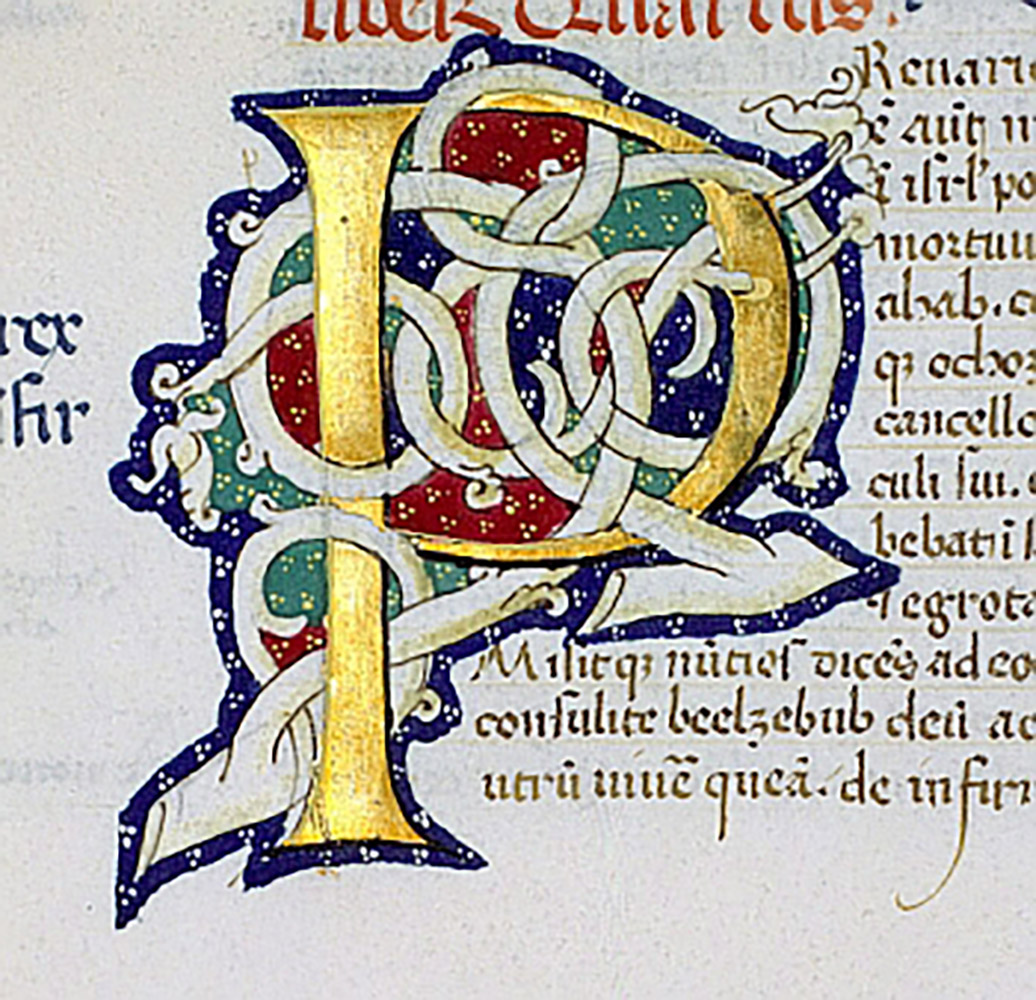 liber Quartus.
P
Reuari
ē aūt m
ī isrl' po
mortuu
ahab. c
q; ochoz
cancello
culi sui.
bebat i
⁊ egrota
Misitq; nūtios dicēs ad eo
consulite beelzebub deū ac
utrū uiuē queā. de infir